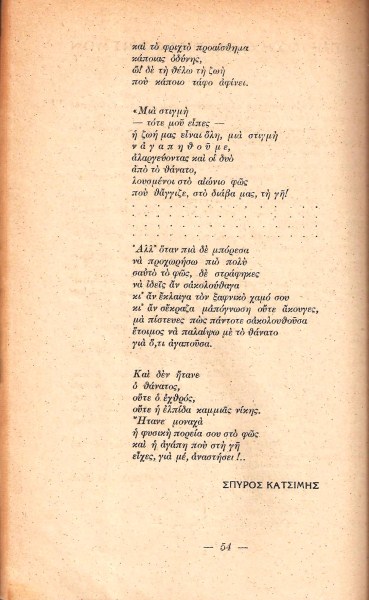 καὶ τὸ φριχτὸ προαίσθημα
κάποιας ὀδύνης,
ὤ! δὲ τὴ θέλω τὴ ζωὴ
ποὺ κάποιο τάφο ἀφίνει.
«Μιὰ στιγμὴ
— τότε μοῦ εἶπες —
ἡ ζωή μας εἶναι ὅλη, μιὰ στιγμὴ
ν ἀ γ α π η θ ο ῦ μ ε,
ἀλαργεύοντας καὶ οἱ δυὸ
ἀπὸ τὸ θάνατο,
λουσμένοι στὸ αἰώνιο φῶς
ποὺ θἄγγιζε, στὸ διάβα μας, τὴ γῆ!
. . . . . . . . . . . . . . . .
. . . . . . . . . . . . . . . .
. . . . . . . . . . . . . . . .
Ἀλλ' ὅταν πιὰ δὲ μπόρεσα
νὰ προχωρήσω πιὸ πολὺ
σαὐτὸ τὸ φῶς, δὲ στράφηκες
νὰ ἰδεῖς ἂν σἀκολούθαγα
κι' ἂν ἔκλαιγα τὸν ξαφνικὸ χαμό σου
κι' ἂν σἔκραζα μἀπόγνωση οὔτε ἄκουγες,
μὰ πίστευες πὼς πάντοτε σἀκολουθοῦσα
ἕτοιμος νὰ παλαίψω μὲ τὸ θάνατο
γιὰ ὅ,τι ἀγαποῦσα.
Καὶ δὲν ἤτανε
ὁ θάνατος,
οὔτε ὁ ἐχθρός,
οὔτε ἡ ἐλπίδα καμμιᾶς νίκης.
Ἤτανε μοναχὰ
ἡ φυσικὴ πορεία σου στὸ φῶς
καὶ ἡ ἀγάπη ποὺ στὴ γῆ
εἶχες, γιὰ μέ, ἀναστήσει!..
ΣΠΥΡΟΣ ΚΑΤΣΙΜΗΣ
— 54 —